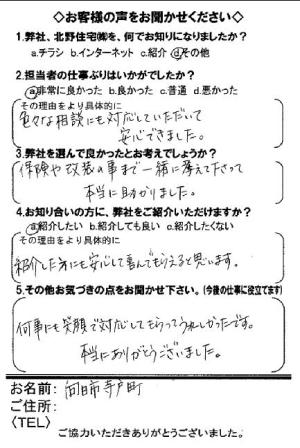 ◇お客様の声をお聞かせください◇
1.弊社、北野住宅㈱を、何でお知りになりましたか?
a.チラシ b.インターネット c.紹介 d.その他
2.担当者の仕事ぶりはいかがでしたか?
a.非常に良かった b.良かった c.普通 d.悪かった
その理由をより具体的に
色々な相談にも対応していただいて
安心できました。
3.弊社を選んで良かったとお考えでしょうか?
保険や改装の事まで一緒に考えて下さって
本当に助かりました。
4.お知り合いの方に、弊社をご紹介いただけますか?
a.紹介したい b.紹介しても良い c.紹介したくない
その理由をより具体的に
紹介した方にも安心して喜んでもらえると思います。
5.その他お気づきの点をお聞かせ下さい。(今後の仕事に役立てます)
何事にも笑顔で対応してもらってうれしかったです。
本当にありがとうございました。
お名前: 向日市寺戸町
ご住所:
〈TEL〉
ご協力いただきありがとうございました。